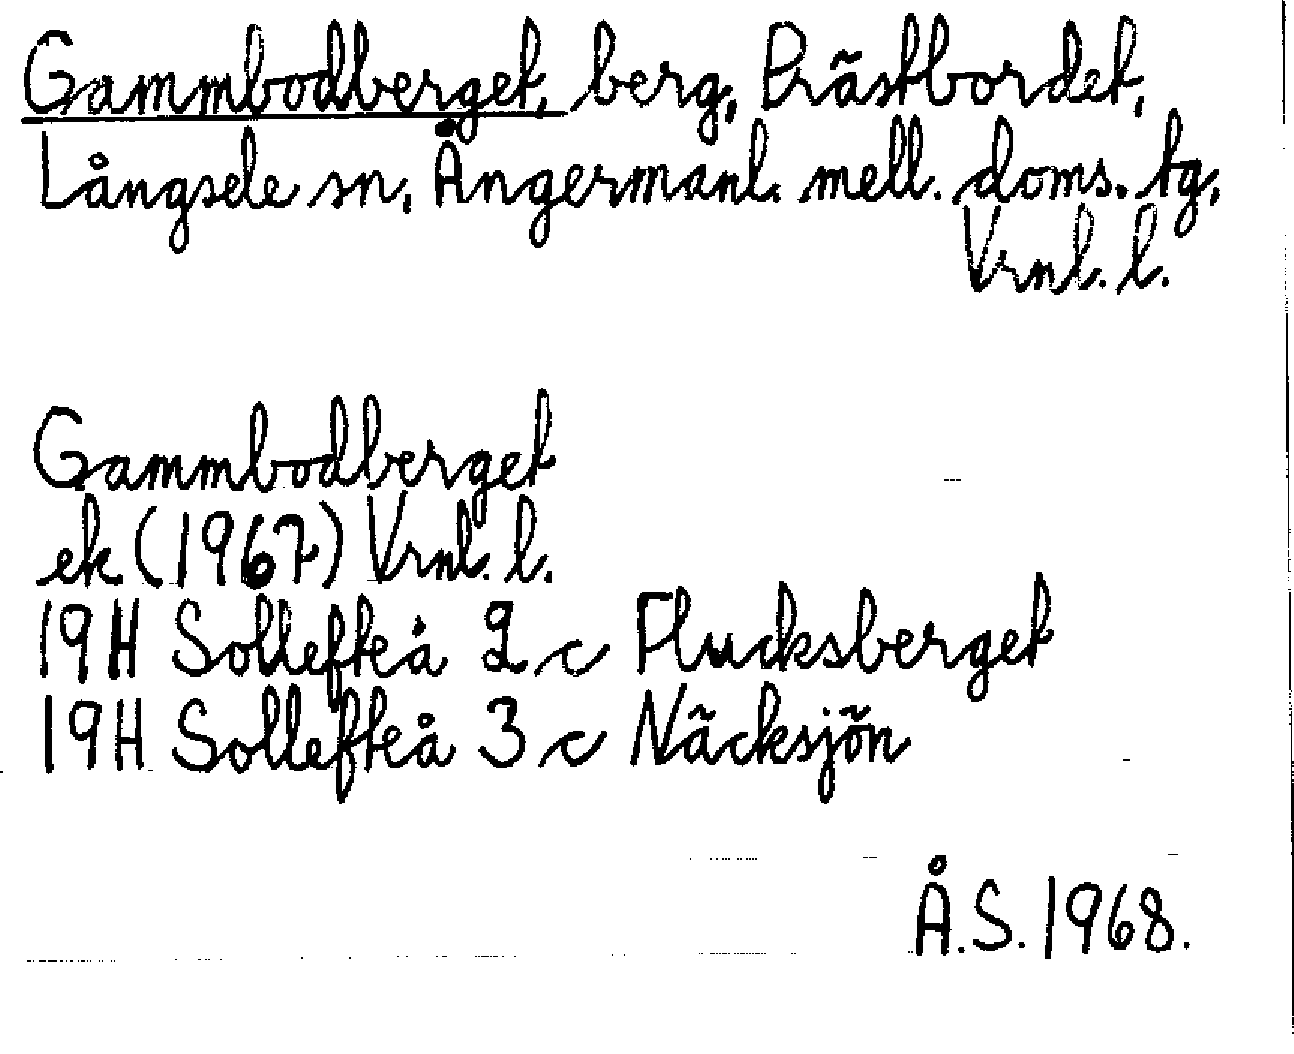 Gammbodberget, berg, Prästbordet,
Långsele sn, Ångermanl. mell. doms. tg,
Vrnl. l.
Gammbodberget
ek (1967) Vrnl. l.
19H Sollefteå 2 c Flucksberget
19H Sollefteå 3 c Näcksjön
Å.S. 1968.